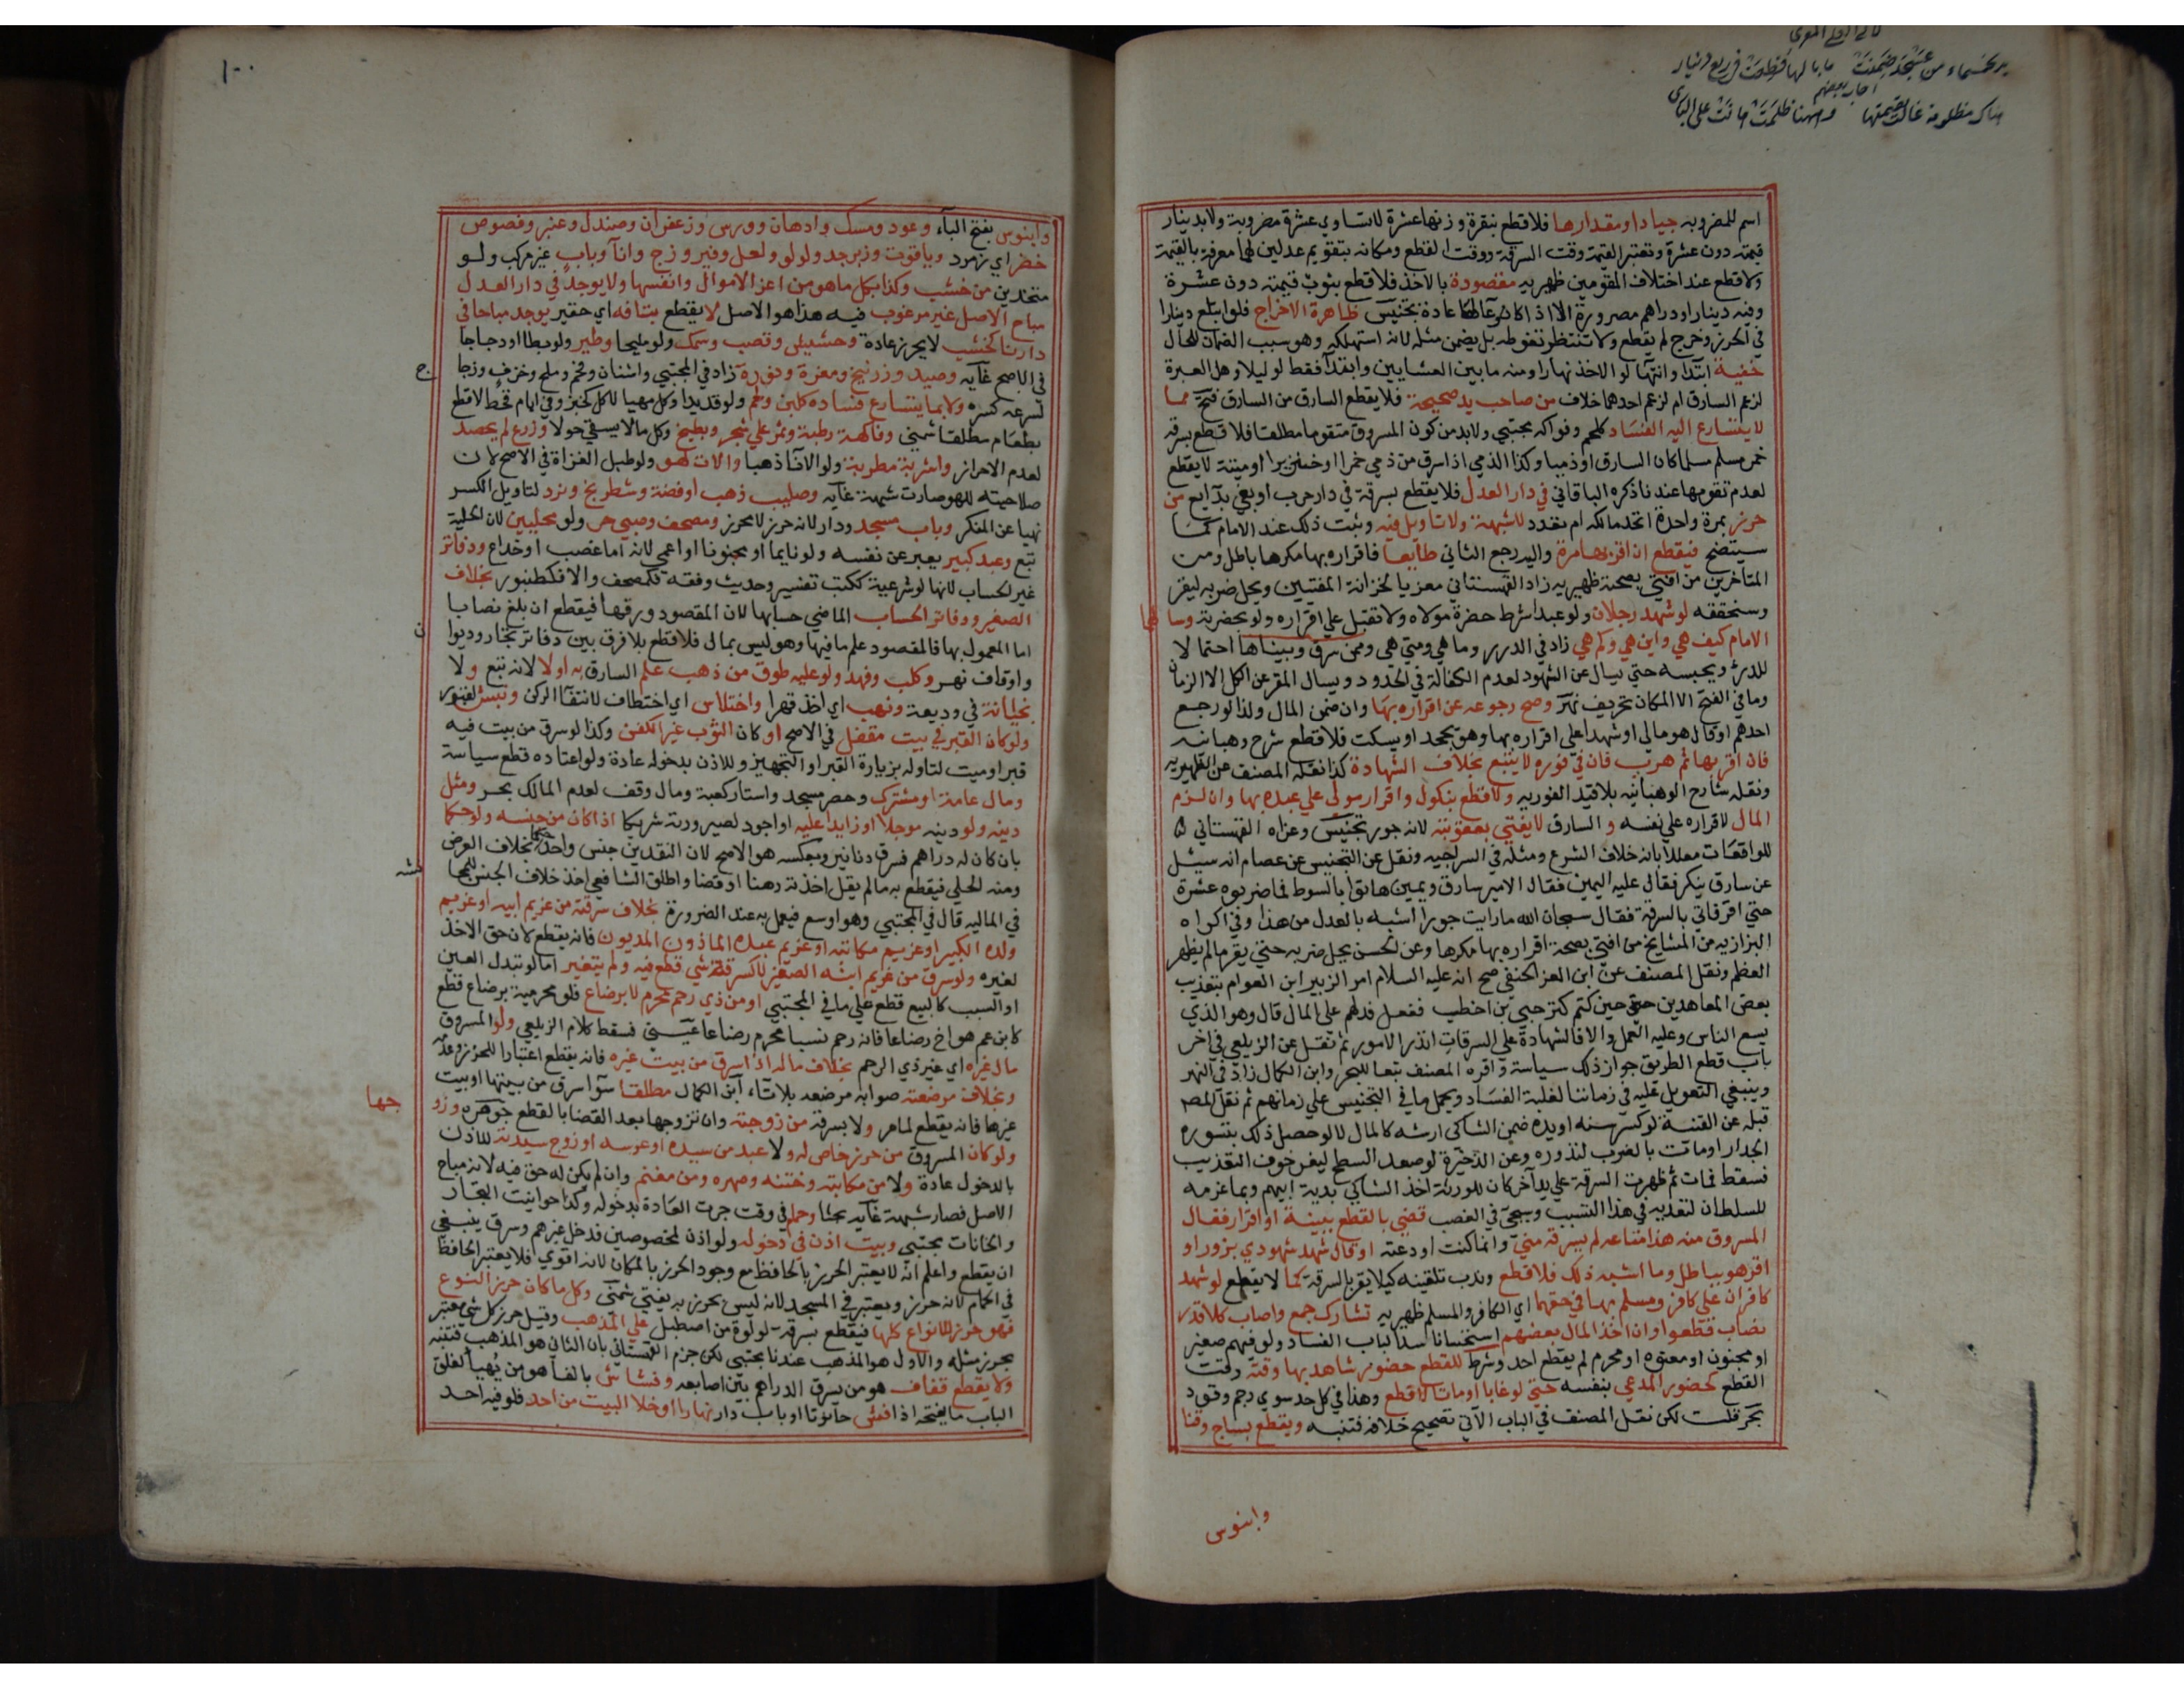 يد بخمسماء من عسجد ضمنت ما بالها قطعت في ربع دينار
اجاب بعضهم
هناك مظلومة غالت بقيمتها وههنا ظلمت هانت على الباري
اسم للمضروبه جيادا ومقدارها فلا قطع بنقرة وزنها عشرة لا تساوي عشرة مضروبة ولا بدينار
قيمته دون عشرة وتعتبر القيمة وقت السرقة ووقت القطع ومكانه بتقويم عدلين لهما معرفة بالقيمة
ولا قطع عند اختلاف المقومين ظهيريه مقصودة بالاخذ فلا قطع بثوب قيمته دون عشرة
وفيه دينار او دراهم مصرورة الا اذا كان وعاء لها عادة تجنيس ظاهرة الاخراج فلو ابتلع دينارا
في الحرز وخرج لم يقطع ولا تنتظر تغوطه بل يضمن مثله لانه استهلكه وهو سبب الضمان للحال
خفية ابتدا وانتها لو الاخذ نهارا ومنه ما بين العشايين وابتدآ فقط لو ليلا وهل العبرة
لزعم السارق ام لزعم احدهما خلاف من صاحب يد صحيحة فلا يقطع السارق من السارق فتح مما
لا يتسارع اليه الفساد كلحم وفواكه مجتبي ولابد من كون المسروق متقوما مطلقا فلا قطع بسرقه
خمر مسلم مسلما كان السارق او ذميا وكذا الذمي اذا سرق من ذمي خمرا او خنزيرا او ميتة لا يقطع
لعدم تقومها عندنا ذكره الباقاني في دار العدل فلا يقطع بسرقة في دار حرب او بغي بدآيع من
حرز بمرة واحدة اتحد مالكه ام تعدد لا شبهة ولا تاويل فيه وثبت ذلك عند الامام كما
سيتضح فيقطع ان اقر بها مرة واليه رجع الثاني طايعا فاقراره بها مكرها باطل ومن
المتاخرين من افتي بصحته ظهيريه زاد القهستاني معزيا لخزانة المفتيين ويحل ضربه ليقر
وسنحققه لو شهد رجلان ولو عبدا شرط حضرة مولاه ولا تقبل علي اقراره ولو بحضرته وسا لهما
الامام كيف هي واين هي وكم هي زاد في الدرر وما هي ومتي هي وممن سرق وبيناها احتما لا
للدرء ويحبسه حتي يسال عن الشهود لعدم الكفالة في الحدود ويسال المقر عن الكل الا الزمان
وما في الفتح الا المكان تحريف نهر وصح رجوعه عن اقراره بها وان ضمن المال وكذا لو رجع
احدهم او قال هو مالي او شهدا علي اقراره بها وهو يجحد او يسكت فلا قطع شرح وهبانيه
فان اقر بها ثم هرب فان في فوره لا يتبع بخلاف الشهادة كذا نقله المصنف عن الظهيريه
ونقله شارح الوهبانيه بلا قيد الفوريه ولا قطع بنكول واقرار مولي علي عبده بها وان لزم
المال لاقراره علي نفسه و السارق لا يفتي بعقوبته لانه جور تجنيس وعزاه القهستاني
للواقعات معللا بانه خلاف الشرع ومثله في السراجيه ونقل عن التجنيس عن عصام انه سيئل
عن سارق ينكر فقال عليه اليمين فقال الامير سارق ويمين هاتوا بالسوط فما ضربوه عشرة
حتي اقر فاتي بالسرقة فقال سبحان الله ما رايت جورا اشبه بالعدل من هذا وفي اكراه
البزازيه من المشايخ من افتي بصحة اقراره بها مكرها وعن الحسن يحل ضربه حتي يقر ما لم يظهر
العظم ونقل المصنف عن ابن العز الحنفي صح انه عليه السلام امر الزبير ابن العوام بتعذيب
بعض المعاهدين حين كتم كنز حيي بن اخطب ففعل فدلهم علي المال قال وهو الذي
يسع الناس وعليه العمل والا فالشهادة علي السرقات اندر الامور ثم نقل عن الزيلعي في اخر
باب قطع الطريق جواز ذلك سياسة واقره المصنف تبعا للبحر وابن الكمال زاد في النهر
وينبغي التعويل عليه في زماننا لغلبة الفساد ويحمل ما في التجنيس علي زمانهم ثم نقل المصه
قبله عن القنية لو كسر سنه او يده ضمن الشاكي ارشه كالمال لا لو حصل ذلك بتسوره
الجدار او مات بالضرب لندوره وعن الذخيرة لو صعد السطح ليفر خوف التعذيب
فسقط فمات ثم ظهرت السرقة علي يد آخر كان للورثة اخذ الشاكي بدية ابيهم وبما غرمه
للسلطان لتعديه في هذا التسبب وسيجئ في الغصب قضي بالقطع ببينة او اقرار فقال
المسروق منه هذا متاعه لم يسرقه مني وانما كنت اودعته او قال شهد شهودي بزور او
اقر هو بباطل وما اشبه ذلك فلا قطع وندب تلقينه كيلا يقر بالسرقة كما لا يقطع لو شهد
كافران علي كافر ومسلم بها في حقهما اي الكافر والمسلم ظهيريه تشارك جمع واصاب كلا قدر
نصاب قطعوا وان اخذ المال بعضهم استحسانا سدا لباب الفساد ولو فيهم صغير
او مجنون او معتوه او محرم لم يقطع احد وشرط للقطع حضور شاهديها وقته وقت
القطع كحضور المدعي بنفسه حتي لو غابا او ماتا لا قطع وهذا في كل حد سوي رجم وقود
بحر قلت لكن نقل المصنف في الباب الآتي تصحيح خلافه فتنبه ويقطع بساج وقنا
وابنوس
١٠٠
وابنوس بفتح البآء وعود ومسك وادهان وورس وزعفران وصندل وعنبر وفصوص
خضر اي زمرد وياقوت وزبرجد ولولو ولعل وفيروزج وانآ وباب غير مركب ولو
متخذين من خشب وكذا بكل ما هو من اعز الاموال وانفسها ولا يوجد في دار العدل
مباح الاصل غير مرغوب فيه هذا هو الاصل لا يقطع بتافه اي حقير يوجد مباحا في
دارنا كخشب لا يحرز عادة وحشيش وقصب وسمك ولو مليحا وطير ولو بطا او دجاجا
في الاصح غآيه وصيد وزرنيخ ومغرة ونورة زاد في المجتبي واشنان وفحم وملح وخزف وزجا ج
لسرعة كسره ولا بما يتسارع فساده كلبن ولحم ولو قديدا وكل مهيا لاكل كخبز وفي ايام قحط لا قطع
بطعام مطلقا شمني وفاكهة رطبة وثمر علي شجر وبطيخ وكل ما لا يبقي حولا وزرع لم يحصد
لعدم الاحراز واشربة مطربة ولو الانآ ذهبا والات لهو ولو طبل الغزاة في الاصح لان
صلاحيته للهو صارت شبهة غآيه وصليب ذهب او فضة وشطرنج ونرد لتاويل الكسر
نهيا عن المنكر وباب مسجد ودار لانه حرز لا محرز ومصحف وصبي حر ولو محليين لان الحلية
تبع وعبد كبير يعبر عن نفسه ولو نايما او مجنونا او اعمي لانه اما غصب او خداع ودفاتر
غير الحساب لانها لو شرعية ككتب تفسير وحديث وفقه فكمصحف والا فكطنبور بخلاف
الصغير ودفاتر الحساب الماضي حسابها لان المقصود ورقها فيقطع ان بلغ نصابا
اما المعمول بها فالمقصود علم ما فيها وهو ليس بمال فلا قطع بلا فرق بين دفاتر تجار وديوا ن
واوقاف نهر وكلب وفهد ولو عليه طوق من ذهب علم السارق به اولا لانه تبع ولا
بخيانة في وديعة ونهب اي اخذ قهرا واختلاس اي اختطاف لانتفآ الركن ونبش لقبور
ولو كان القبر في بيت مقفل في الاصح او كان الثوب غير الكفن وكذا لو سرق من بيت فيه
قبر او ميت لتاوله بزيارة القبر او التجهيز وللاذن بدخوله عادة ولو اعتاده قطع سياسة
ومال عامة او مشترك وحصر مسجد واستار كعبة ومال وقف لعدم المالك بحر ومثل
دينه ولو دينه موجلا او زايدا عليه او اجود لصيرورته شريكا اذا كان من جنسه ولو حكما
بان كان له دراهم فسرق دنانير وبعكسه هو الاصح لان النقدين جنس واحد حكما بخلاف العرض
ومنه الحلي فيقطع به ما لم يقل اخذته رهنا او قضا واطلق الشافعي اخذ خلاف الجنس للمجا نسه
في الماليه قال في المجتبي وهو اوسع فيعمل به عند الضرورة بخلاف سرقته من غريم ابيه او غريم
ولده الكبير او غريم مكاتبه او غريم عبده الماذون المديون فانه يقطع لان حق الاخذ
لغيره ولو سرق من غريم ابنه الصغير لا كسرقة شي قطع فيه ولم يتغير اما لو تبدل العين
او السبب كالبيع قطع علي ما في المجتبي او من ذي رحم محرم لا برضاع فلو محرمية برضاع قطع
كابن عم هو اخ رضاعا فانه رحم نسبا محرم رضاعا عيني فسقط كلام الزيلعي ولو المسروق
مال غيره اي غير ذي الرحم بخلاف ماله اذا سرق من بيت غيره فانه يقطع اعتبارا للحرز وعدمه
وبخلاف مرضعته صوابه مرضعه بلا تآء ابن الكمال مطلقا سوآ سرق من بيتها او بيت
غيرها فانه يقطع لما مر ولا بسرقة من زوجته وان تزوجها بعد القضا بالقطع جوهره وزو جها
ولو كان المسروق من حرز خاص له ولا عبد من سيده او عرسه او زوج سيدته للاذن
بالدخول عادة ولا من مكاتبه وختنه وصهره ومن مغنم وان لم يكن له حق فيه لانه مباح
الاصل فصار شبهة غآيه بحثا وحمام في وقت جرت العادة بدخوله وكذا حوانيت التجار
والخانات مجتبي وبيت اذن في دخوله ولو اذن لمخصوصين فدخل غيرهم وسرق ينبغي
ان يقطع واعلم انه لا يعتبر الحرز بالحافظ مع وجود الحرز بالمكان لانه اقوي فلا يعتبر الحافظ
في الحمام لانه حرز ويعتبر في المسجد لانه ليس بحرز به يفتي شمني وكل ما كان حرز النوع
فهو حرز للانواع كلها فيقطع بسرقة لولوة من اصطبل علي المذهب وقيل حرز كل شي معتبر
بحرز مثله والاول هو المذهب عندنا مجتبي لكن جزم القهستاني بان الثاني هو المذهب فتنبه
ولا يقطع قفاف هو من سرق الدراهم بين اصابعه وفشاش بالفآ هو من يهيا لغلق
الباب ما يفتحه اذا فش حانوتا او باب دار نهارا او خلا البيت من احد فلو فيه احد